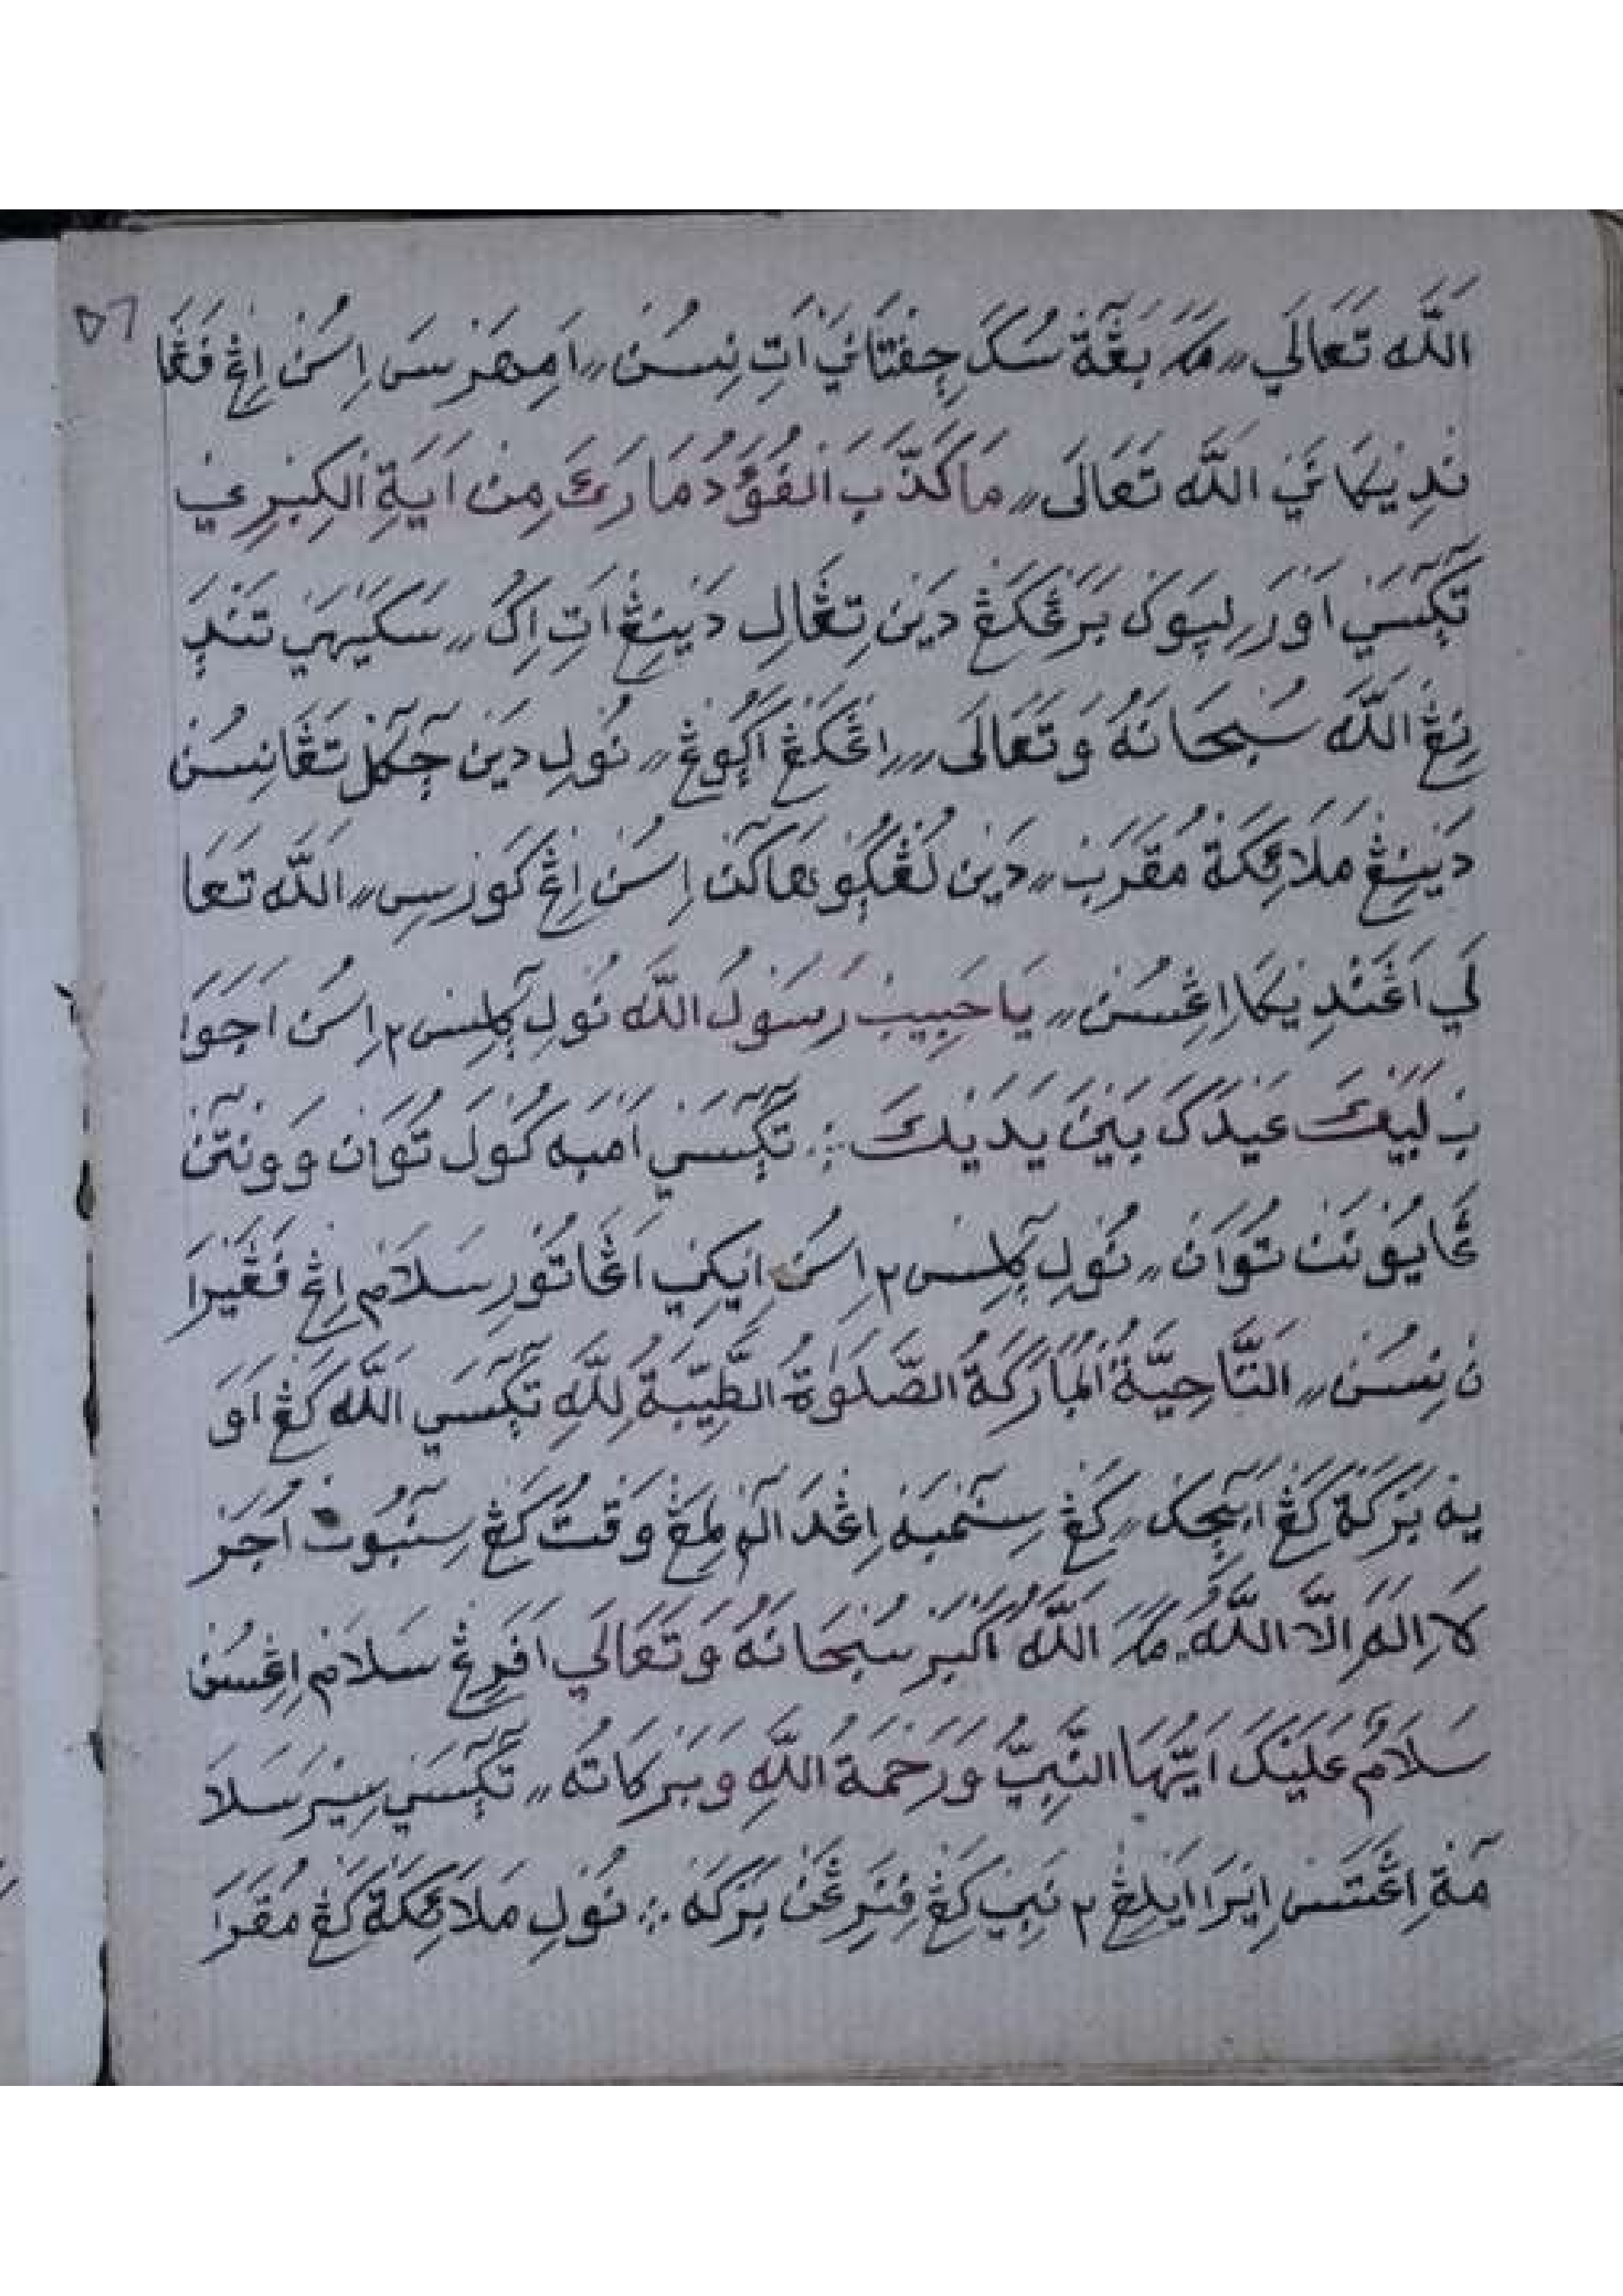 ٥٦
اللّٰه تَعَالَي // مَكَ بُڠَّة سُكَ چِفْتَانَيْ اَتِ نِيسُنْ // اَمِهَرْسَ اِسُنْ اِڠْ فَڠَا
نْدِيكَانَيْ اللّٰه تَعَالَى // مَا كَذَّبَ الْفُؤَدُ مَا رَئَ مِنْ اٰيَةِ الْكِبْرِيْ
تٓڮٓسَيْ اَوْرَ لِيڽَوكْ بَرَڠْكَڠْ دَيْنَ تِڠَالِ دَيْنِيڠْ اَتِ اِكُ // سَكَيْهَيْ تَنْدَ
نِڠْ اللّٰه سُبْحَانَهُ وَتَعَالَى /// اِڠْكَڠْ اَڮُوڠْ // نُولِ دَيْنَ چٓكٓلْ تَڠَانِسُنْ
دَيْنِيڠْ مَلَائِكَة مُقَرَبْ // دَيْنَ لُڠْڮُوهَاكٓنْ اِسُنْ اِڠْ كُوْرسِ // اللّٰه تَعَا
لَي اَڠَنْدِيكَا اِڠِسُنْ // يَا حَبِيبْ رَسُولُ اللّٰه نُولِ ڮٓلِيسْ٢ اِسُنْ اَجَوَا
بْ لَبَّيْكَ عَبْدُكَ بَيْنَ يَدَيْكَ ؞ تٓڮٓسَيْ اَمْبَه كَولَ تُوَانْ وَونْتٓنْ
ڠَايُوْنَنْ تُوَانْ // نُولِ ڮٓلِيسْ٢ اِسُنْ اِيكِيْ اَڠَاتُورْ سَلَامْ اِڠْ فَڠَيْرَا
نْ نِسُنْ // التَّاحِيَّةُ الْمُبَارَكَةُ الصَّلَوٰةُ الطَّيِّبَةُ لِلّٰهِ تٓڮٓسَيْ اللّٰه كَڠْ اَوَ
يهْ بَرَكَة كَڠْ اَبٓچِكْ // كَڠْ سٓمْبَه اِڠْدَالٓمْ لِمَڠْ وَقْتُ كَڠْ سِنٓبُوتْ اُجَرْ
لَا اِلَهَ اِلَّا اللّٰهُ // مَكَ اللّٰهُ اَكْبَرْ سُبْحَانَهُ وَتَعَالَي اَفَرِڠْ سَلَامْ اِڠِسُنْ
سَلَامٌ عَلَيْكَ اَيُّهَا النَّبِيُّ وَرَحْمَةُ اللّٰهِ وَبَرَكَاتُه // تٓڮٓسَيْ سِيرَ سَلَا
مٓة اِڠَتَسْ اِيْرَا اَيْلِيڠْ٢ نَبِيْ كَڠْ فِنَرِڠَنْ بَرَكَه ؞ نُولِ مَلَائِكَة كَڠْ مُقَرَا